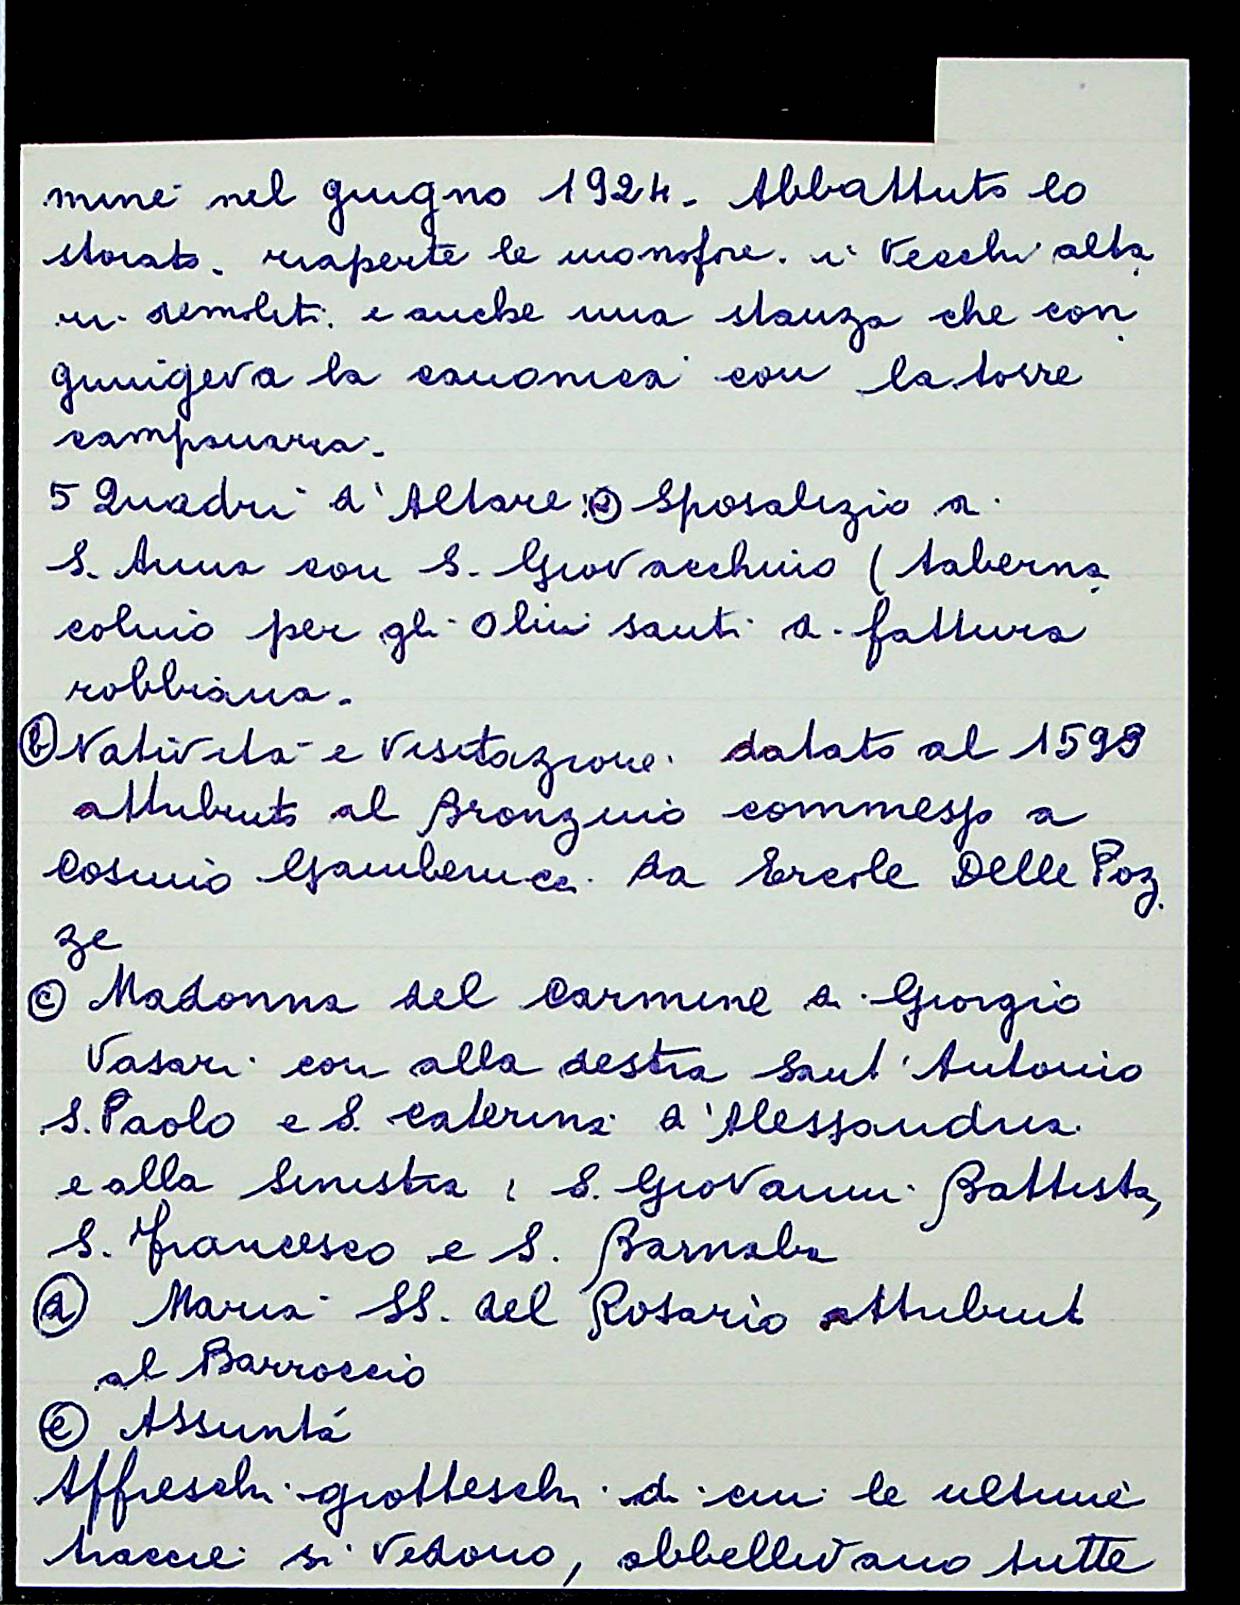 mine nel giugno 1924. Abbattuto lo
stoiato. riaperte le monofore. i vecchi alta
ri demoliti. e anche una stanza che con
giungeva la canonica con la torre
campanaria.
5 Quadri d'Altare: a) Sposalizio di
S. Anna con S. Giovacchino (taberna
colino per gli Olii santi di fattura
robbiana.
b) Natività e Visitazione. datato al 1599
attribuito al Bronzino commesso a
Cosimo Gamberucci da Ercole Delle Poz
ze
c) Madonna del Carmine di Giorgio
Vasari con alla destra Sant'Antonio
S. Paolo e S. Caterina d'Alessandria
e alla sinistra: S. Giovanni Battista,
S. Francesco e S. Barnaba
d) Maria SS. del Rosario attribuit
al Barroccio
e) Assunta
Affreschi grotteschi di cui le ultime
traccie si vedono, abbellivano tutte